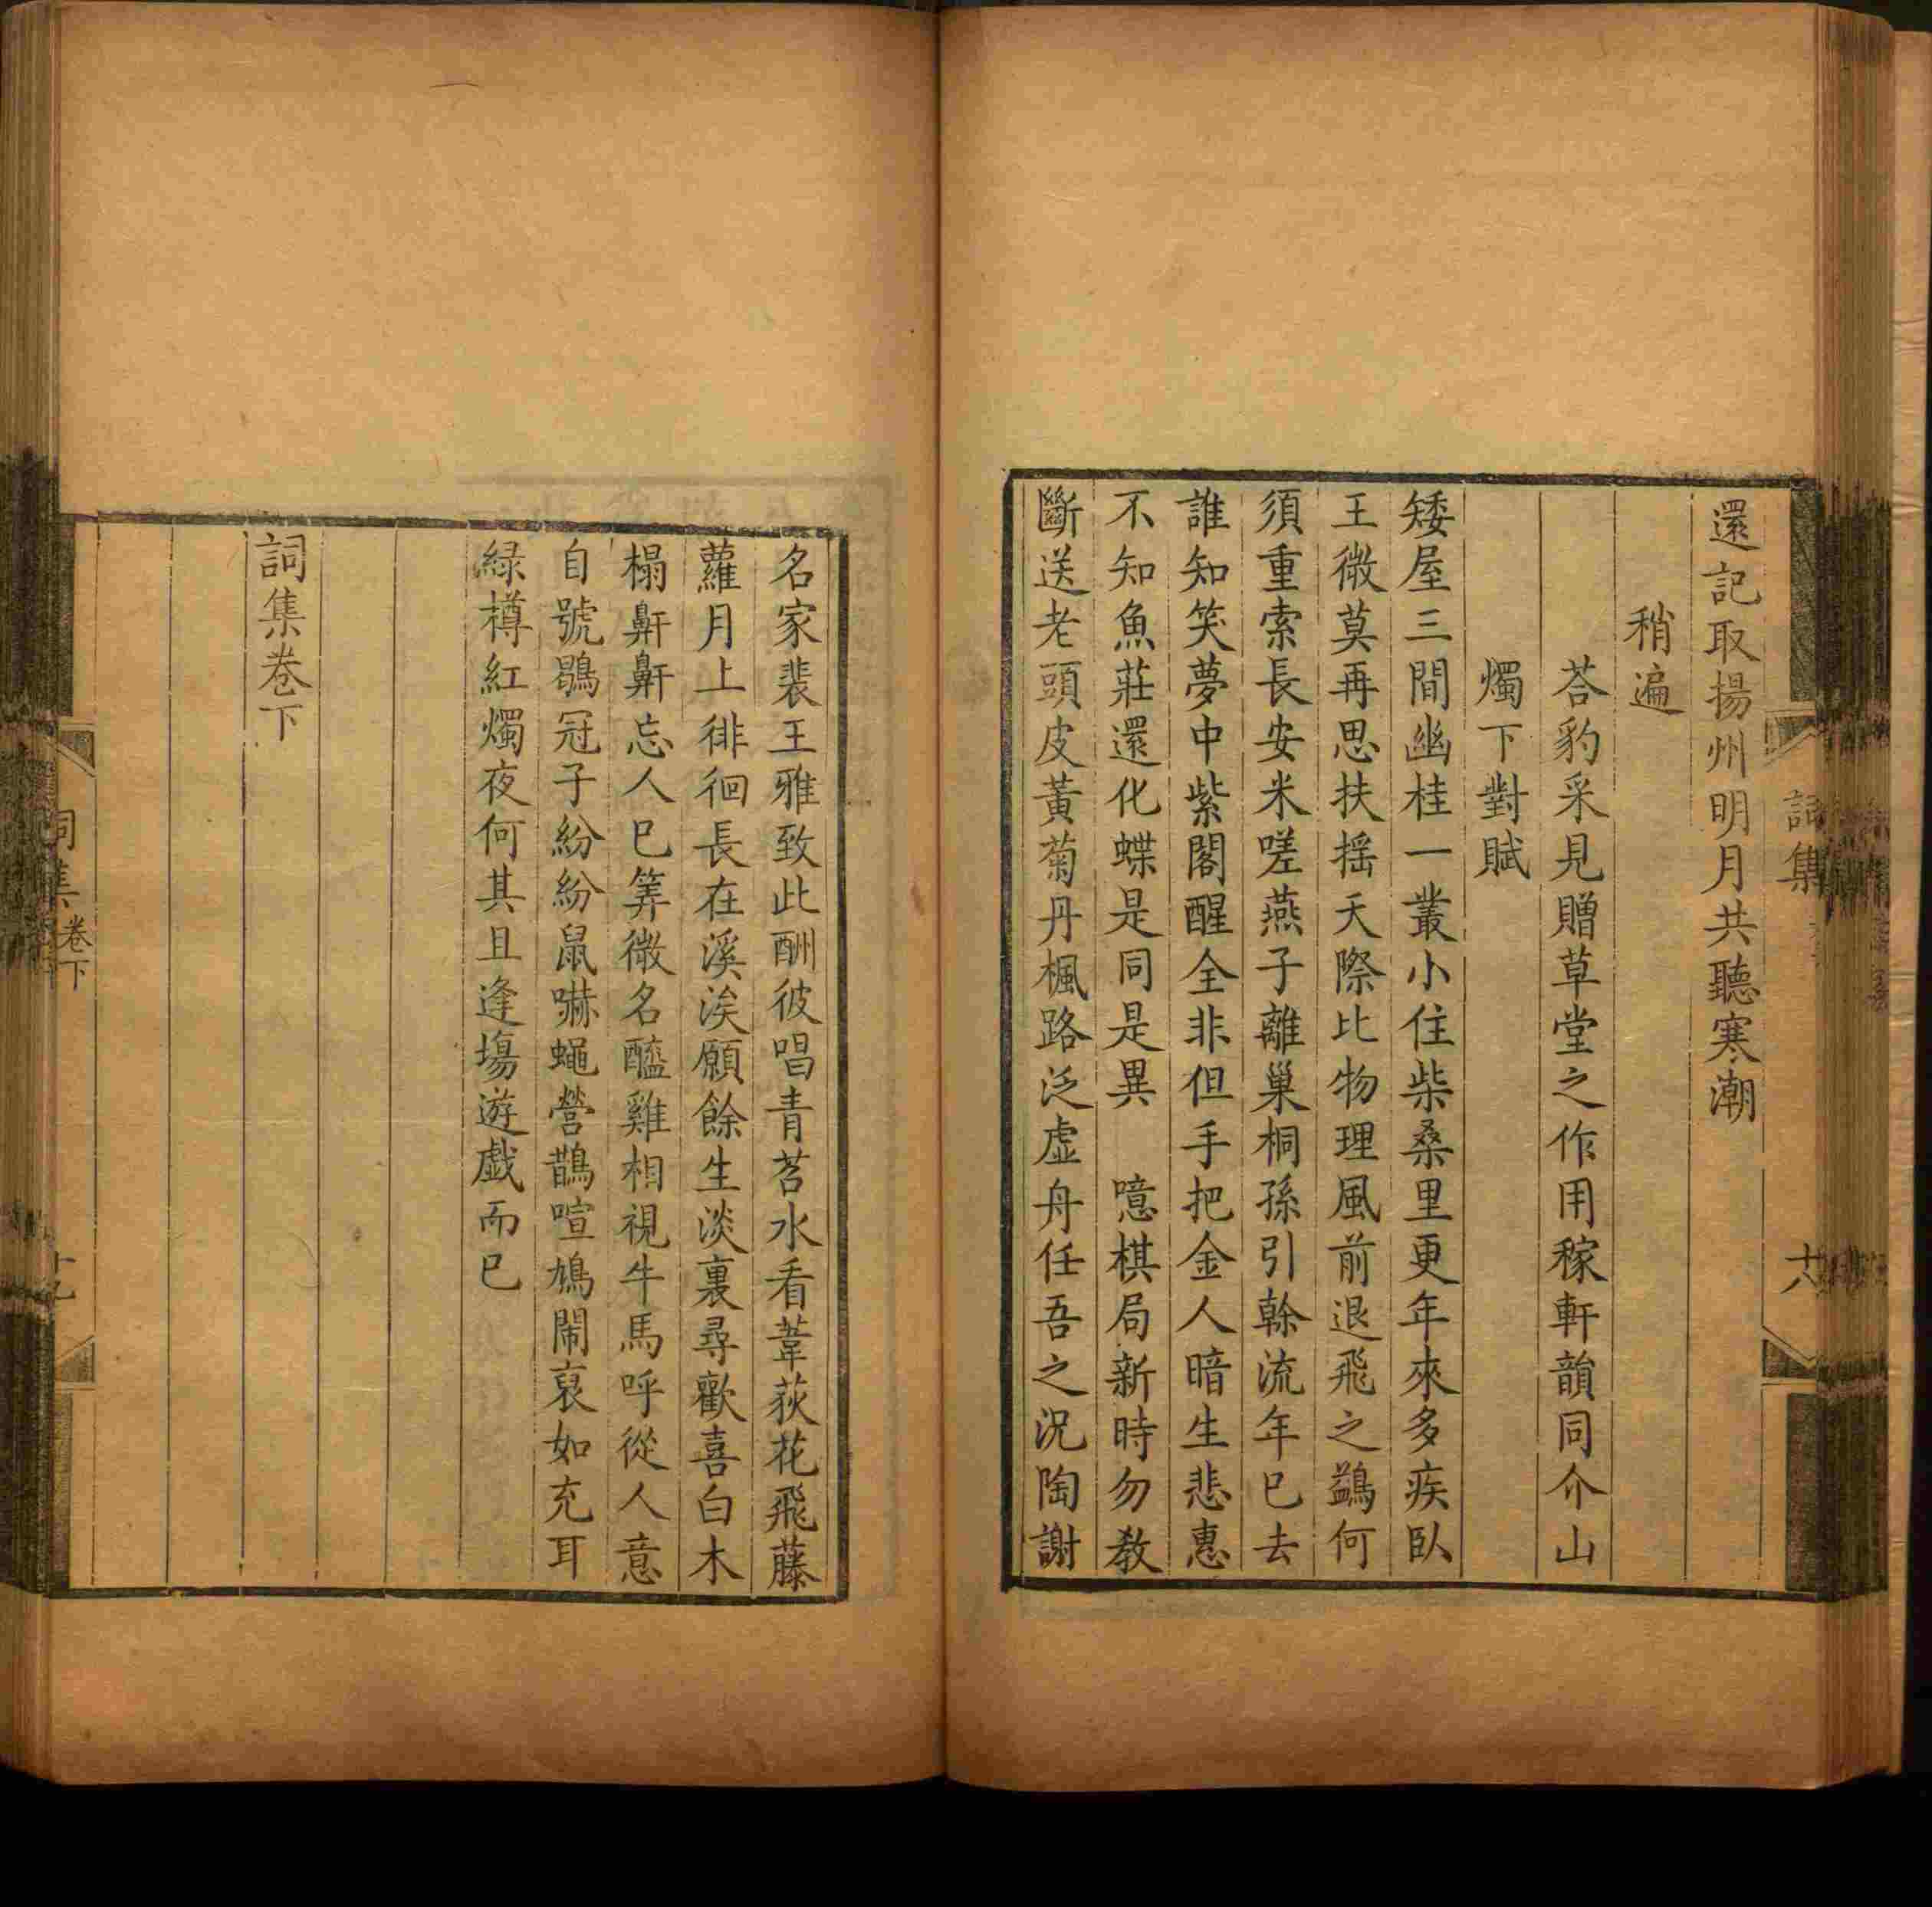 詞集
十八
還記取揚州明月共聽寒潮
稍遍
荅豹采見贈草堂之作用稼軒韻同介山
燭下對賦
矮屋三間幽桂一叢小住柴桑里更年來多疾臥
王微莫再思扶摇天際比物理風前退飛之鷁何
須重索長安米嗟燕子離巢桐孫引榦流年巳去
誰知笑夢中紫閣醒全非但手把金人暗生悲惠
不知魚莊還化蝶是同是異　噫棋局新時勿教
斷送老頭皮黃菊丹楓路泛虚舟任吾之況陶謝
名家裴王雅致此酬彼唱青苕水看葦荻花飛藤
蘿月上徘徊長在溪涘願餘生淡裏尋歡喜白木
榻鼾鼾忘人巳筭微名醯雞相視牛馬呼從人意
自號鶡冠子紛紛鼠嚇蠅營鵲喧鳩鬧裒如充耳
緑樽紅燭夜何其且逢塲遊戯而巳
詞集卷下
詞集
卷下
十九